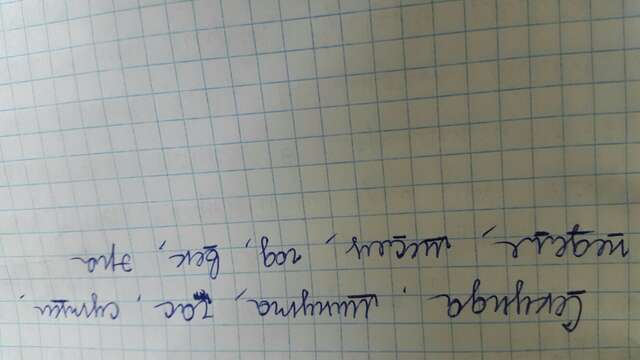 Секунда, минута, час, сутки,
неделя, месяц, год, век, эра